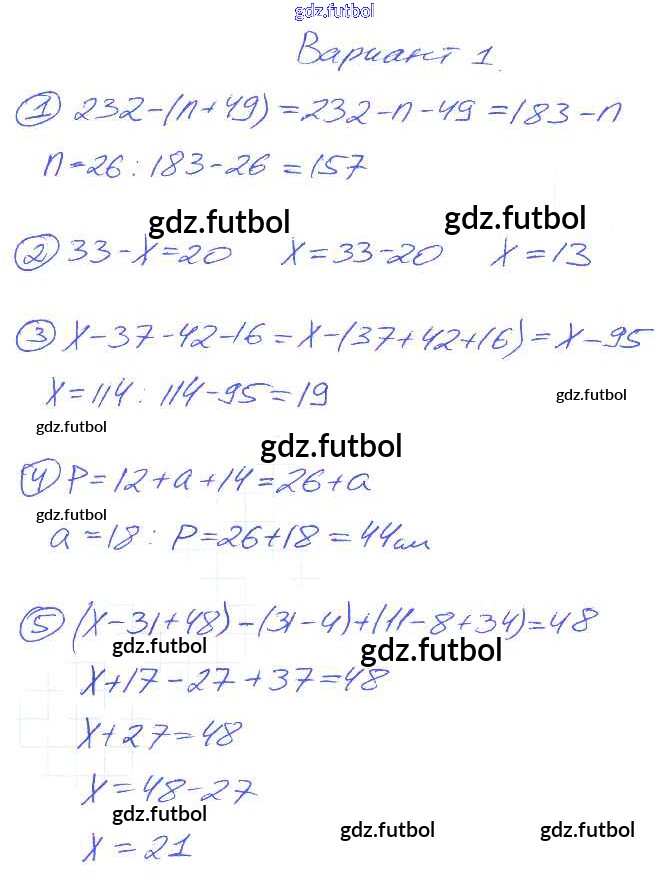 gdz.futbol
Вариант 1.
① 232-(n+49)=232-n-49=183-n
n=26: 183-26=157
gdz.futbol gdz.futbol
② 33-x=20 x=33-20 x=13
③ x-37-42-16=x-(37+42+16)=x-95
x=114: 114-95=19
gdz.futbol
gdz.futbol
gdz.futbol
④ P=12+a+14=26+a
gdz.futbol
a=18: P=26+18=44см
⑤ (x-31+48)-(31-4)+(11-8+34)=48
gdz.futbol gdz.futbol
x+17-27+37=48
x+27=48
x=48-27
gdz.futbol
gdz.futbol gdz.futbol
x=21